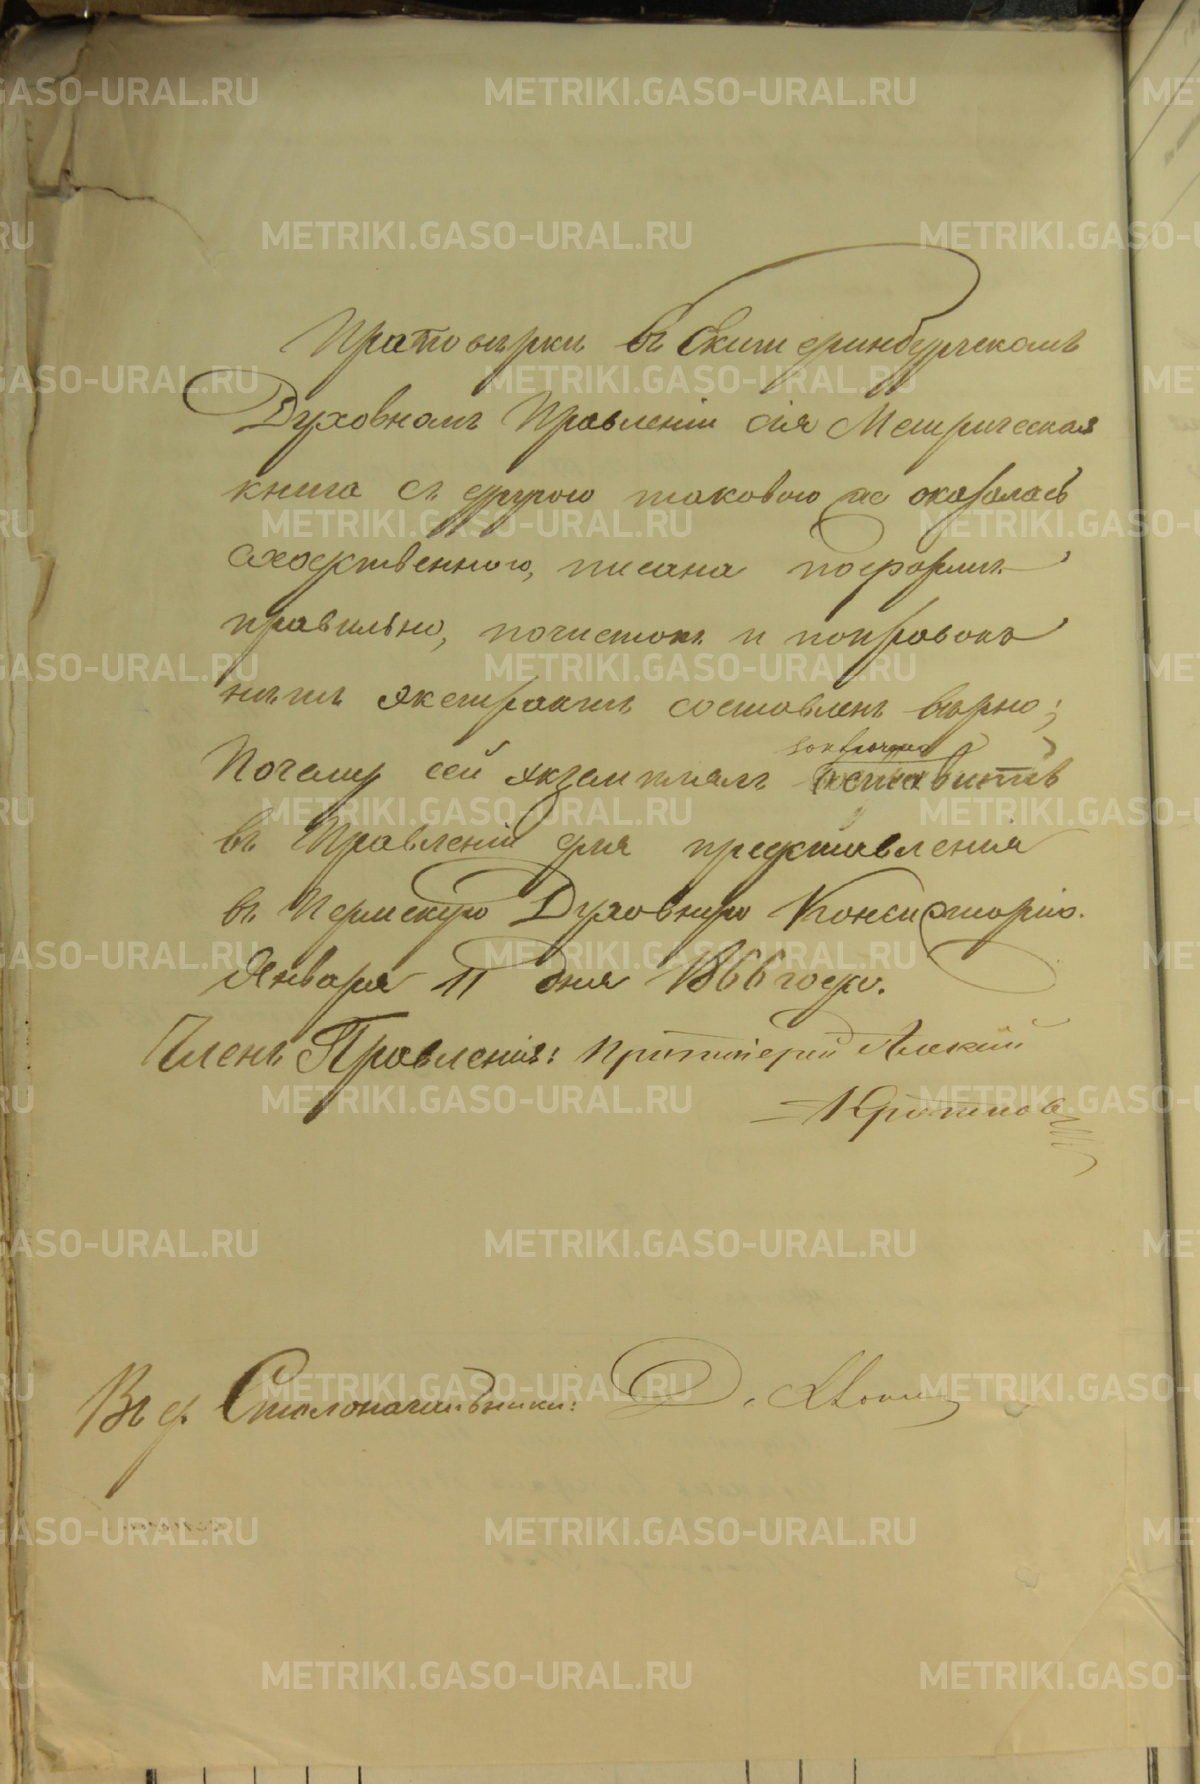 При повѣркѣ въ Екатеринбургскомъ
Духовномъ Правленіи сія Метрическая
книга съ другою таковою же оказалась
сходственною, писана по формѣ
правильно, почистокъ и поправокъ
нѣтъ экстрактъ составленъ вѣрно;
Почему сей экземпляръ оставить
въ Правленіи для представленія
въ Пермскую Духовную Консисторію.
Января 11 дня 1866 года.
Членъ Правленія: Протоіерей Алексій
Въ д. Столоначальника: Д.
METRIKI.GASO-URAL.RU